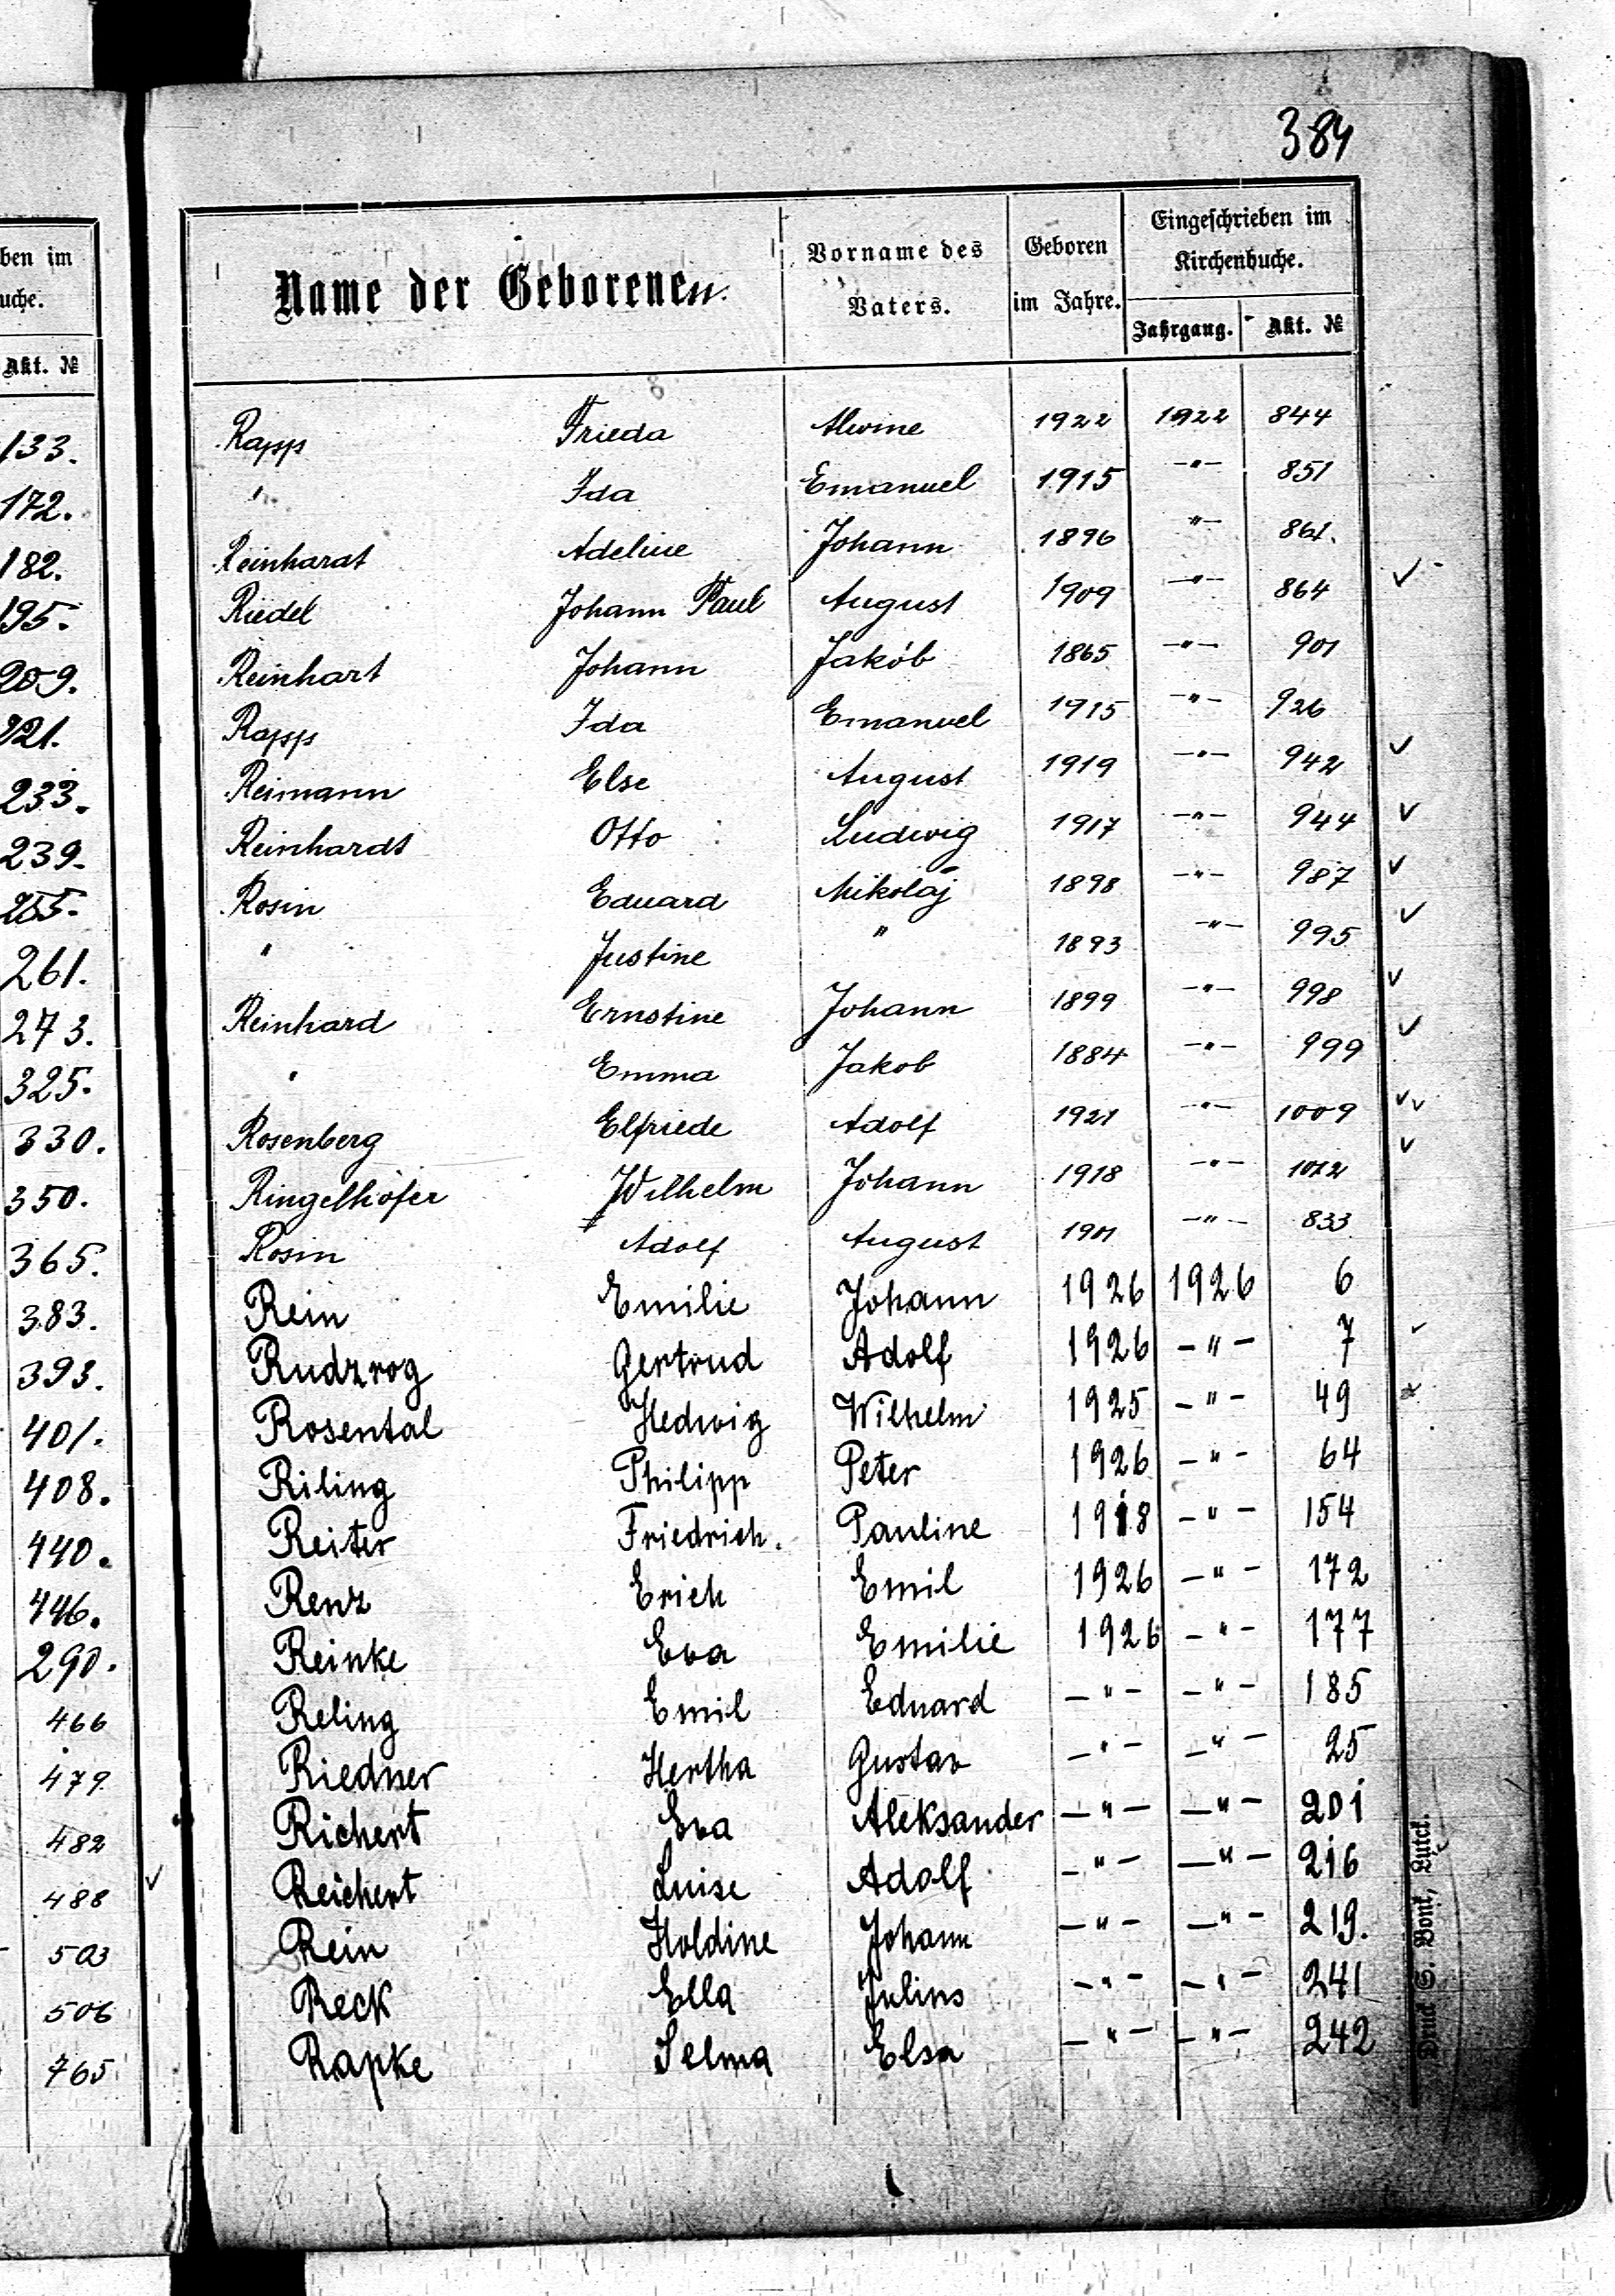 384
ben im
uche.
Akt. №
133.
172.
182.
195.
209.
221.
233.
239.
255.
261.
273.
325.
330.
350.
365.
383.
393.
401.
408.
440.
446.
290.
466
479
482
488
503
506
765
Name der Geborenen. Vorname des Vaters. Geboren im Jahre. Eingeschrieben im Kirchenbuche.
Jahrgang. Akt. №
Rapp Frieda Alwine 1922 1922 844
" Ida Emanuel 1915 -"- 851
Reinhardt Adeline Johann 1896 -"- 861.
Riedel Johann Paul August 1909 -"- 864 ✓
Reinhart Johann Jakób 1865 -"- 901
Rapp Ida Emanuel 1915 -"- 926
Reimann Else August 1919 -"- 942 ✓
Reinhardt Otto Ludwig 1917 -"- 944 ✓
Rosin Eduard Mikolaj 1898 -"- 987 ✓
" Justine " 1893 -"- 995 ✓
Reinhard Ernstine Johann 1899 -"- 998 ✓
" Emma Jakob 1884 -"- 999 ✓
Rosenberg Elfriede Adolf 1921 -"- 1009 ✓✓
Ringelhöfer Wilhelm Johann 1918 -"- 1012 ✓
Rosin Adolf August 1901 -"- 833
Rein Emilie Johann 1926 1926 6
Rudzrog Gertrud Adolf 1926 -"- 7 ✓
Rosental Hedwig Wilhelm 1925 -"- 49
Riling Philipp Peter 1926 -"- 64
Reiter Friedrich. Pauline 1918 -"- 154
Renz Erich Emil 1926 -"- 172
Reinke Eva Emilie 1926 -"- 177
Reling Emil Eduard -"- -"- 185
Riedner Hertha Gustav -"- -"- 25
Richert Eva Aleksander -"- -"- 201
Reichert Luise Adolf -"- -"- 216
Rein Holdine Johann -"- -"- 219.
Reck Ella Julius -"- -"- 241
Rapke Selma Elsa -"- -"- 242
Druck S. Bonk, Lutck.